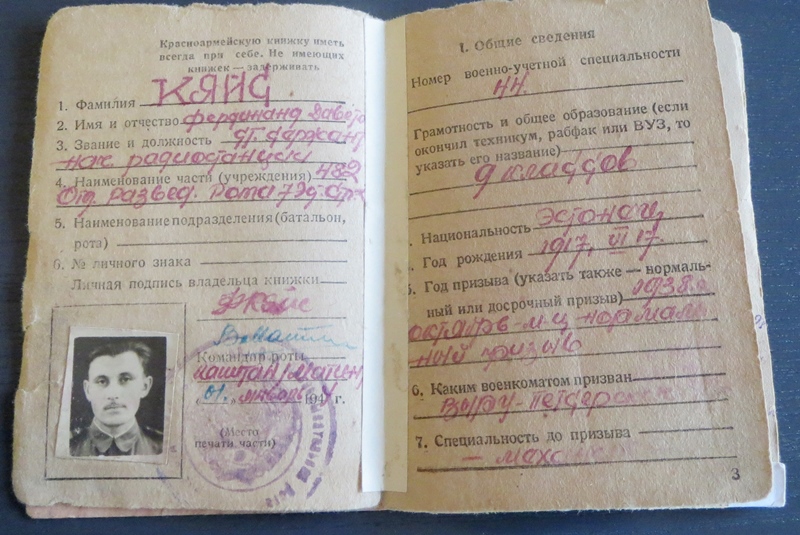 Красноармейскую книжку иметь
всегда при себе. Не имеющих
книжек — задерживать
1. Фамилия КЯЙС
2. Имя и отчество Фердинанд
3. Звание и должность
нач. радиостанции
4. Наименование части (учреждения) 482
Отд. развед. рота
5. Наименование подразделения (батальон,
рота)
6. № личного знака
Личная подпись владельца книжки
Командор роты
01 январь 194 г.
(Место
печати части)
I. Общие сведения
Номер военно-учетной специальности
44
Грамотность и общее образование (если
окончил техникум, рабфак или ВУЗ, то
указать его название)
9 классов
Национальность Эстонец
Год рождения 1917, VI 17.
Год призыва (указать также — нормаль-
ный или досрочный призыв) 1938
октябрь м-ц нормаль
ный призыв
6. Каким военкоматом призван
Выру
7. Специальность до призыва
3